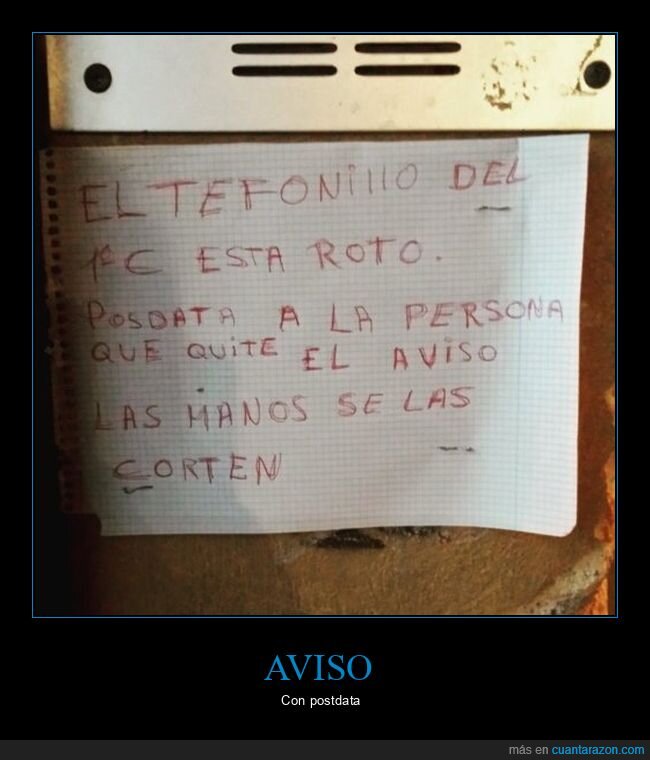 EL TEFONillO DEL
1ºC ESTA ROTO.
POSDATA A LA PERSONA
QUE QUiTE EL AViSO
LAS MANOS SE LAS
CORTEN
AVISO
Con postdata
más en cuantarazon.com